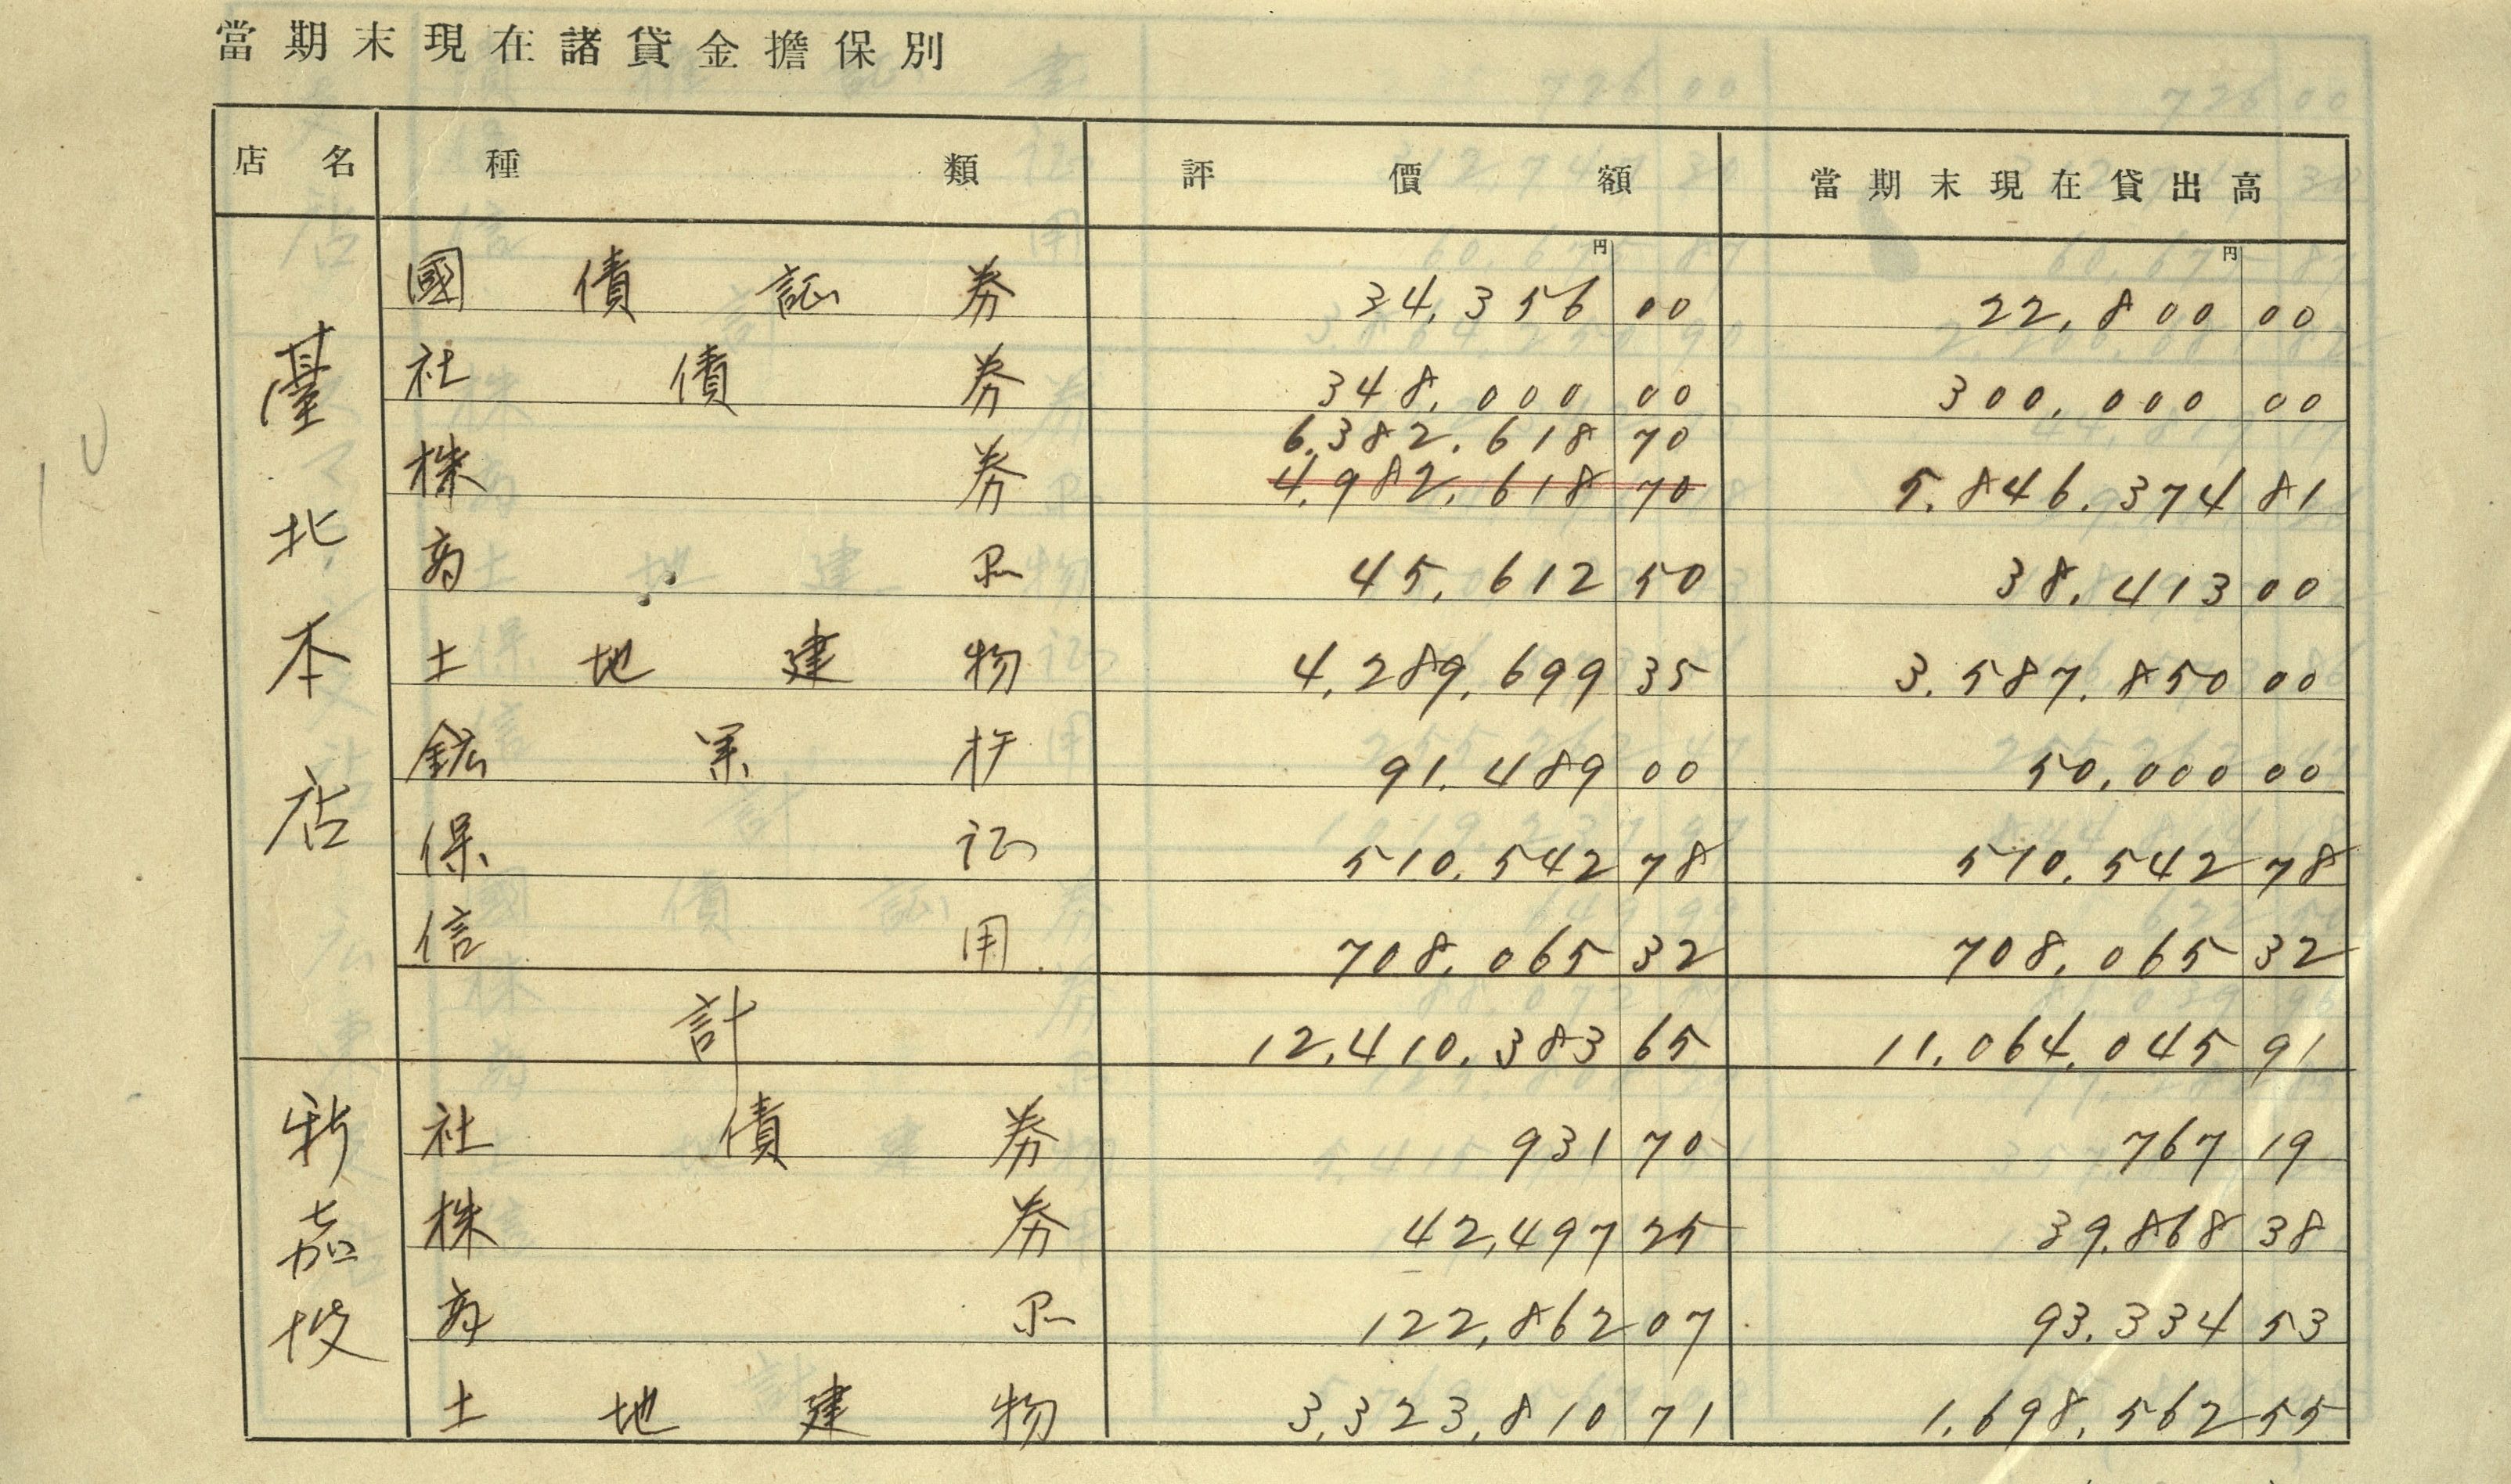 當期末現在諸貸金擔保別
店名 種類 評價額 當期末現在貸出高
円 円
臺北本店
國債証券 34,356 00 22,800 00
社債券 348,000 00 300,000 00
6,382,618 70
株券 4,982,618 70 5,846,374 81
商品 45,612 50 38,413 00
土地建物 4,289,699 35 3,587,850 00
鉱業权 91,489 00 50,000 00
保証 510,542 78 510,542 78
信用 708,065 32 708,065 32
計 12,410,383 65 11,064,045 91
新嘉坡
社債券 931 70 767 19
株券 42,497 25 39,868 38
商品 122,862 07 93,334 53
土地建物 3,323,810 71 1,698,562 55